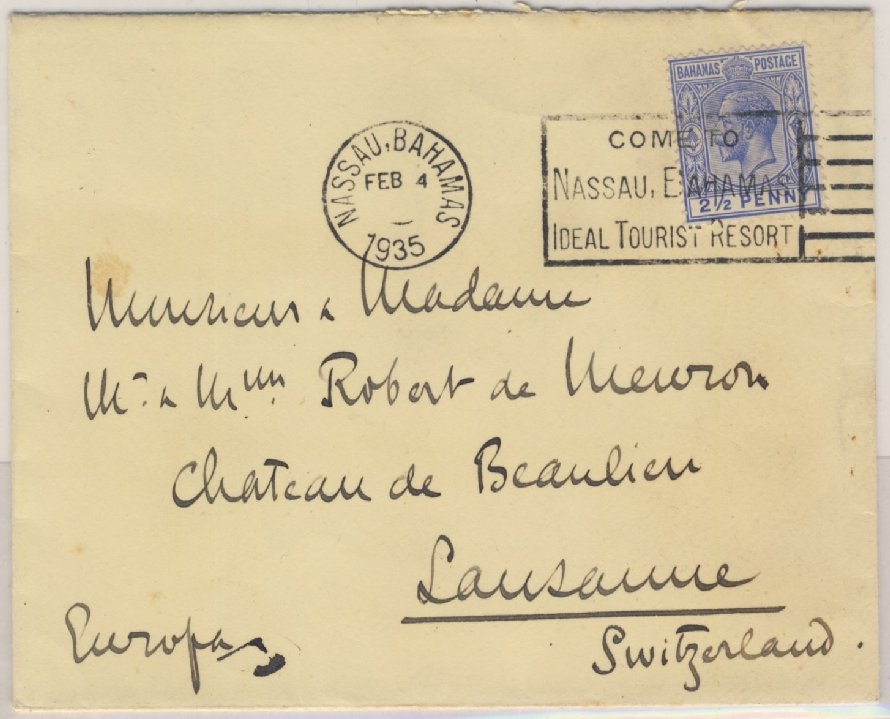 BAHAMAS POSTAGE
2½ PENNY
NASSAU, BAHAMAS
FEB 4
1935
COME TO
NASSAU, BAHAMAS
IDEAL TOURIST RESORT
Monsieur & Madame
Mr. & Mme Robert de Meuron
Chateau de Beaulieu
Lausanne
Europa
Switzerland.